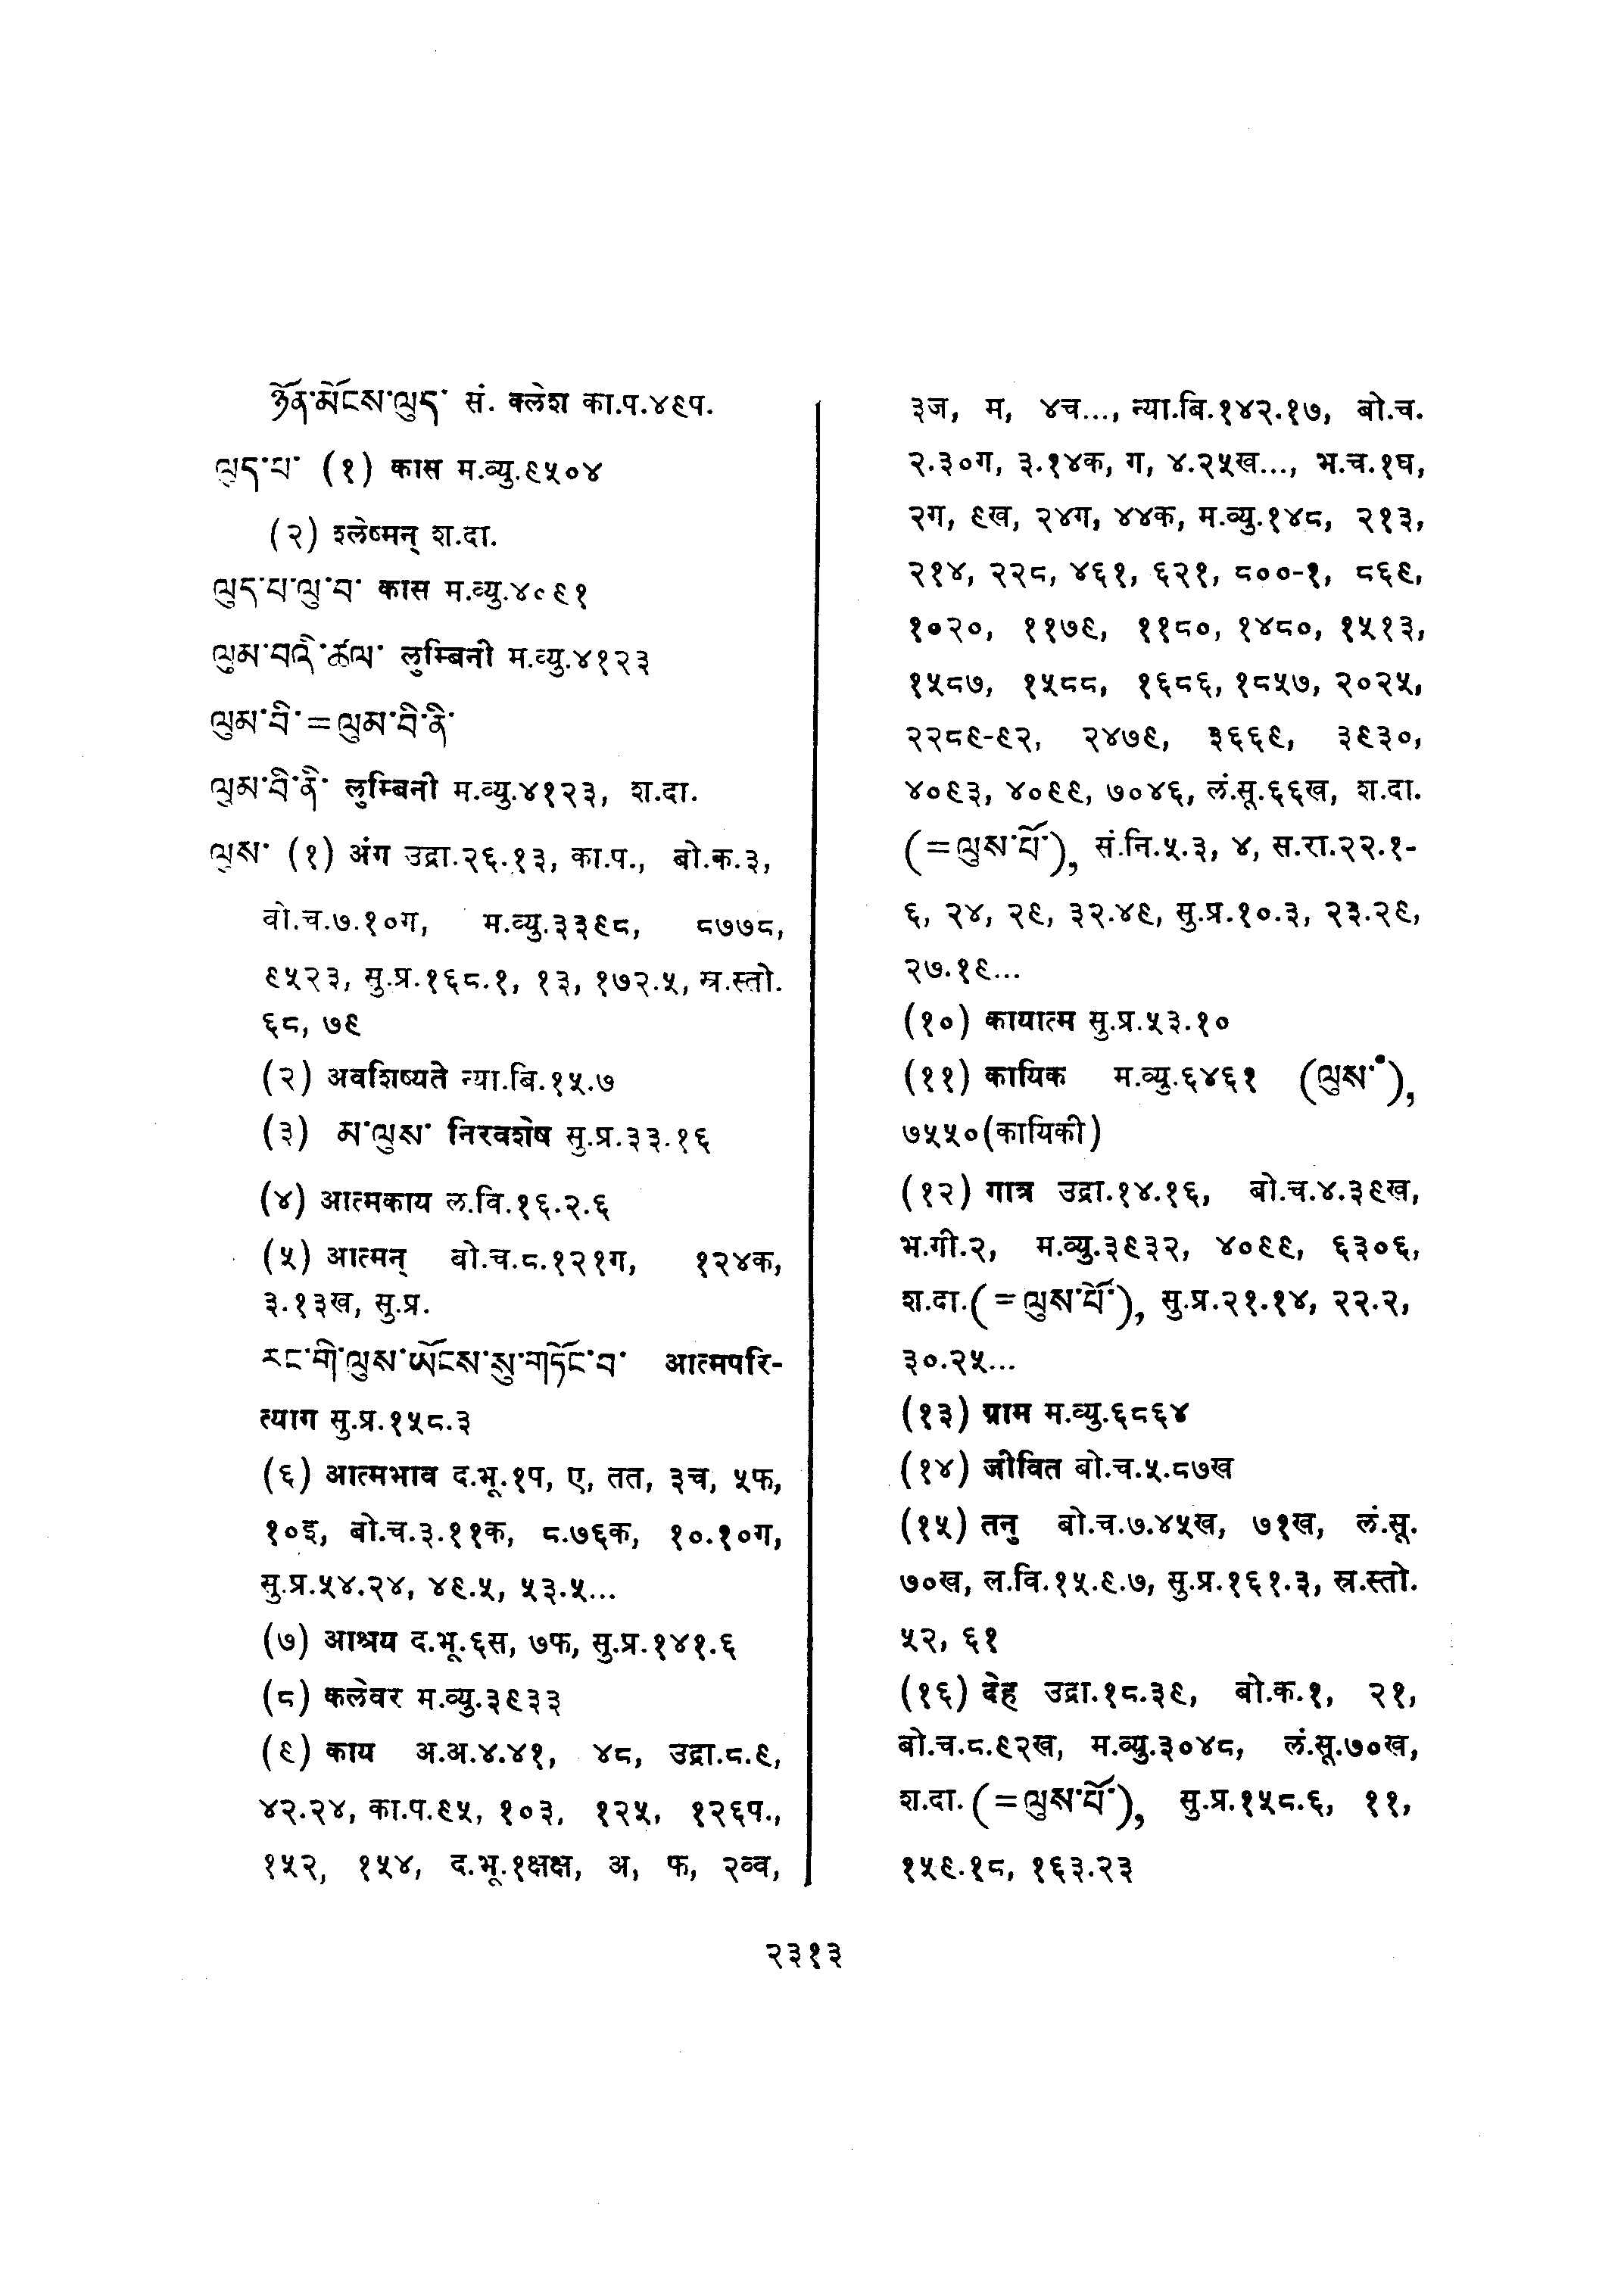 ཉོན་མོངས་ལུད་ सं. क्लेश का.प.४९प.
ལུད་པ་ (१) कास म.व्यु.९५०४
(२) श्लेष्मन् श.दा.
ལུད་པ་ལུ་བ་ कास म.व्यु.४०९१
ལུམ་བའི་ཚལ་ लुम्बिनी म.व्यु.४१२३
ལུམ་བི་=ལུམ་བི་ནི་
ལུམ་བི་ནི་ लुम्बिनी म.व्यु.४१२३, श.दा.
ལུས་ (१) अंग उद्रा.२६.१३, का.प., बो.क.३,
बो.च.७.१०ग, म.व्यु.३३९८, ८७७८,
९५२३, सु.प्र.१६८.१, १३, १७२.५, स्र.स्तो.
६८, ७९
(२) अवशिष्यते न्या.बि.१५.७
(३) མ་ལུས་ निरवशेष सु.प्र.३३.१६
(४) आत्मकाय ल.वि.१६.२.६
(५) आत्मन् बो.च.८.१२१ग, १२४क,
३.१३ख, सु.प्र.
རང་གི་ལུས་ཡོངས་སུ་གཏོང་བ་ आत्मपरि-
त्याग सु.प्र.१५८.३
(६) आत्मभाव द.भू.१प, ए, तत, ३च, ५फ,
१०इ, बो.च.३.११क, ८.७६क, १०.१०ग,
सु.प्र.५४.२४, ४९.५, ५३.५...
(७) आश्रय द.भू.६स, ७फ, सु.प्र.१४१.६
(८) कलेवर म.व्यु.३९३३
(९) काय अ.अ.४.४१, ४८, उद्रा.८.९,
४२.२४, का.प.९५, १०३, १२५, १२६प.,
१५२, १५४, द.भू.१क्षक्ष, अ, फ, २व्व,
३ज, म, ४च..., न्या.बि.१४२.१७, बो.च.
२.३०ग, ३.१४क, ग, ४.२५ख..., भ.च.१घ,
२ग, ९ख, २४ग, ४४क, म.व्यु.१४८, २१३,
२१४, २२८, ४६१, ६२१, ८००-१, ८६९,
१०२०, ११७९, ११८०, १४८०, १५१३,
१५८७, १५८८, १६८६, १८५७, २०२५,
२२८९-९२, २४७९, ३६६९, ३९३०,
४०९३, ४०९९, ७०४६, लं.सू.६६ख, श.दा.
(=ལུས་པོ་), सं.नि.५.३, ४, स.रा.२२.१-
६, २४, २९, ३२.४९, सु.प्र.१०.३, २३.२९,
२७.१९...
(१०) कायात्म सु.प्र.५३.१०
(११) कायिक म.व्यु.६४६१ (ལུས་ཾ),
७५५०(कायिकी)
(१२) गात्र उद्रा.१४.१६, बो.च.४.३९ख,
भ.गी.२, म.व्यु.३९३२, ४०९९, ६३०६,
श.दा.(=ལུས་པོ་), सु.प्र.२१.१४, २२.२,
३०.२५...
(१३) ग्राम म.व्यु.६८६४
(१४) जीवित बो.च.५.८७ख
(१५) तनु बो.च.७.४५ख, ७१ख, लं.सू.
७०ख, ल.वि.१५.९.७, सु.प्र.१६१.३, स्र.स्तो.
५२, ६१
(१६) देह उद्रा.१८.३९, बो.क.१, २१,
बो.च.८.९२ख, म.व्यु.३०४८, लं.सू.७०ख,
श.दा.(=ལུས་པོ་), सु.प्र.१५८.६, ११,
१५९.१८, १६३.२३
२३१३